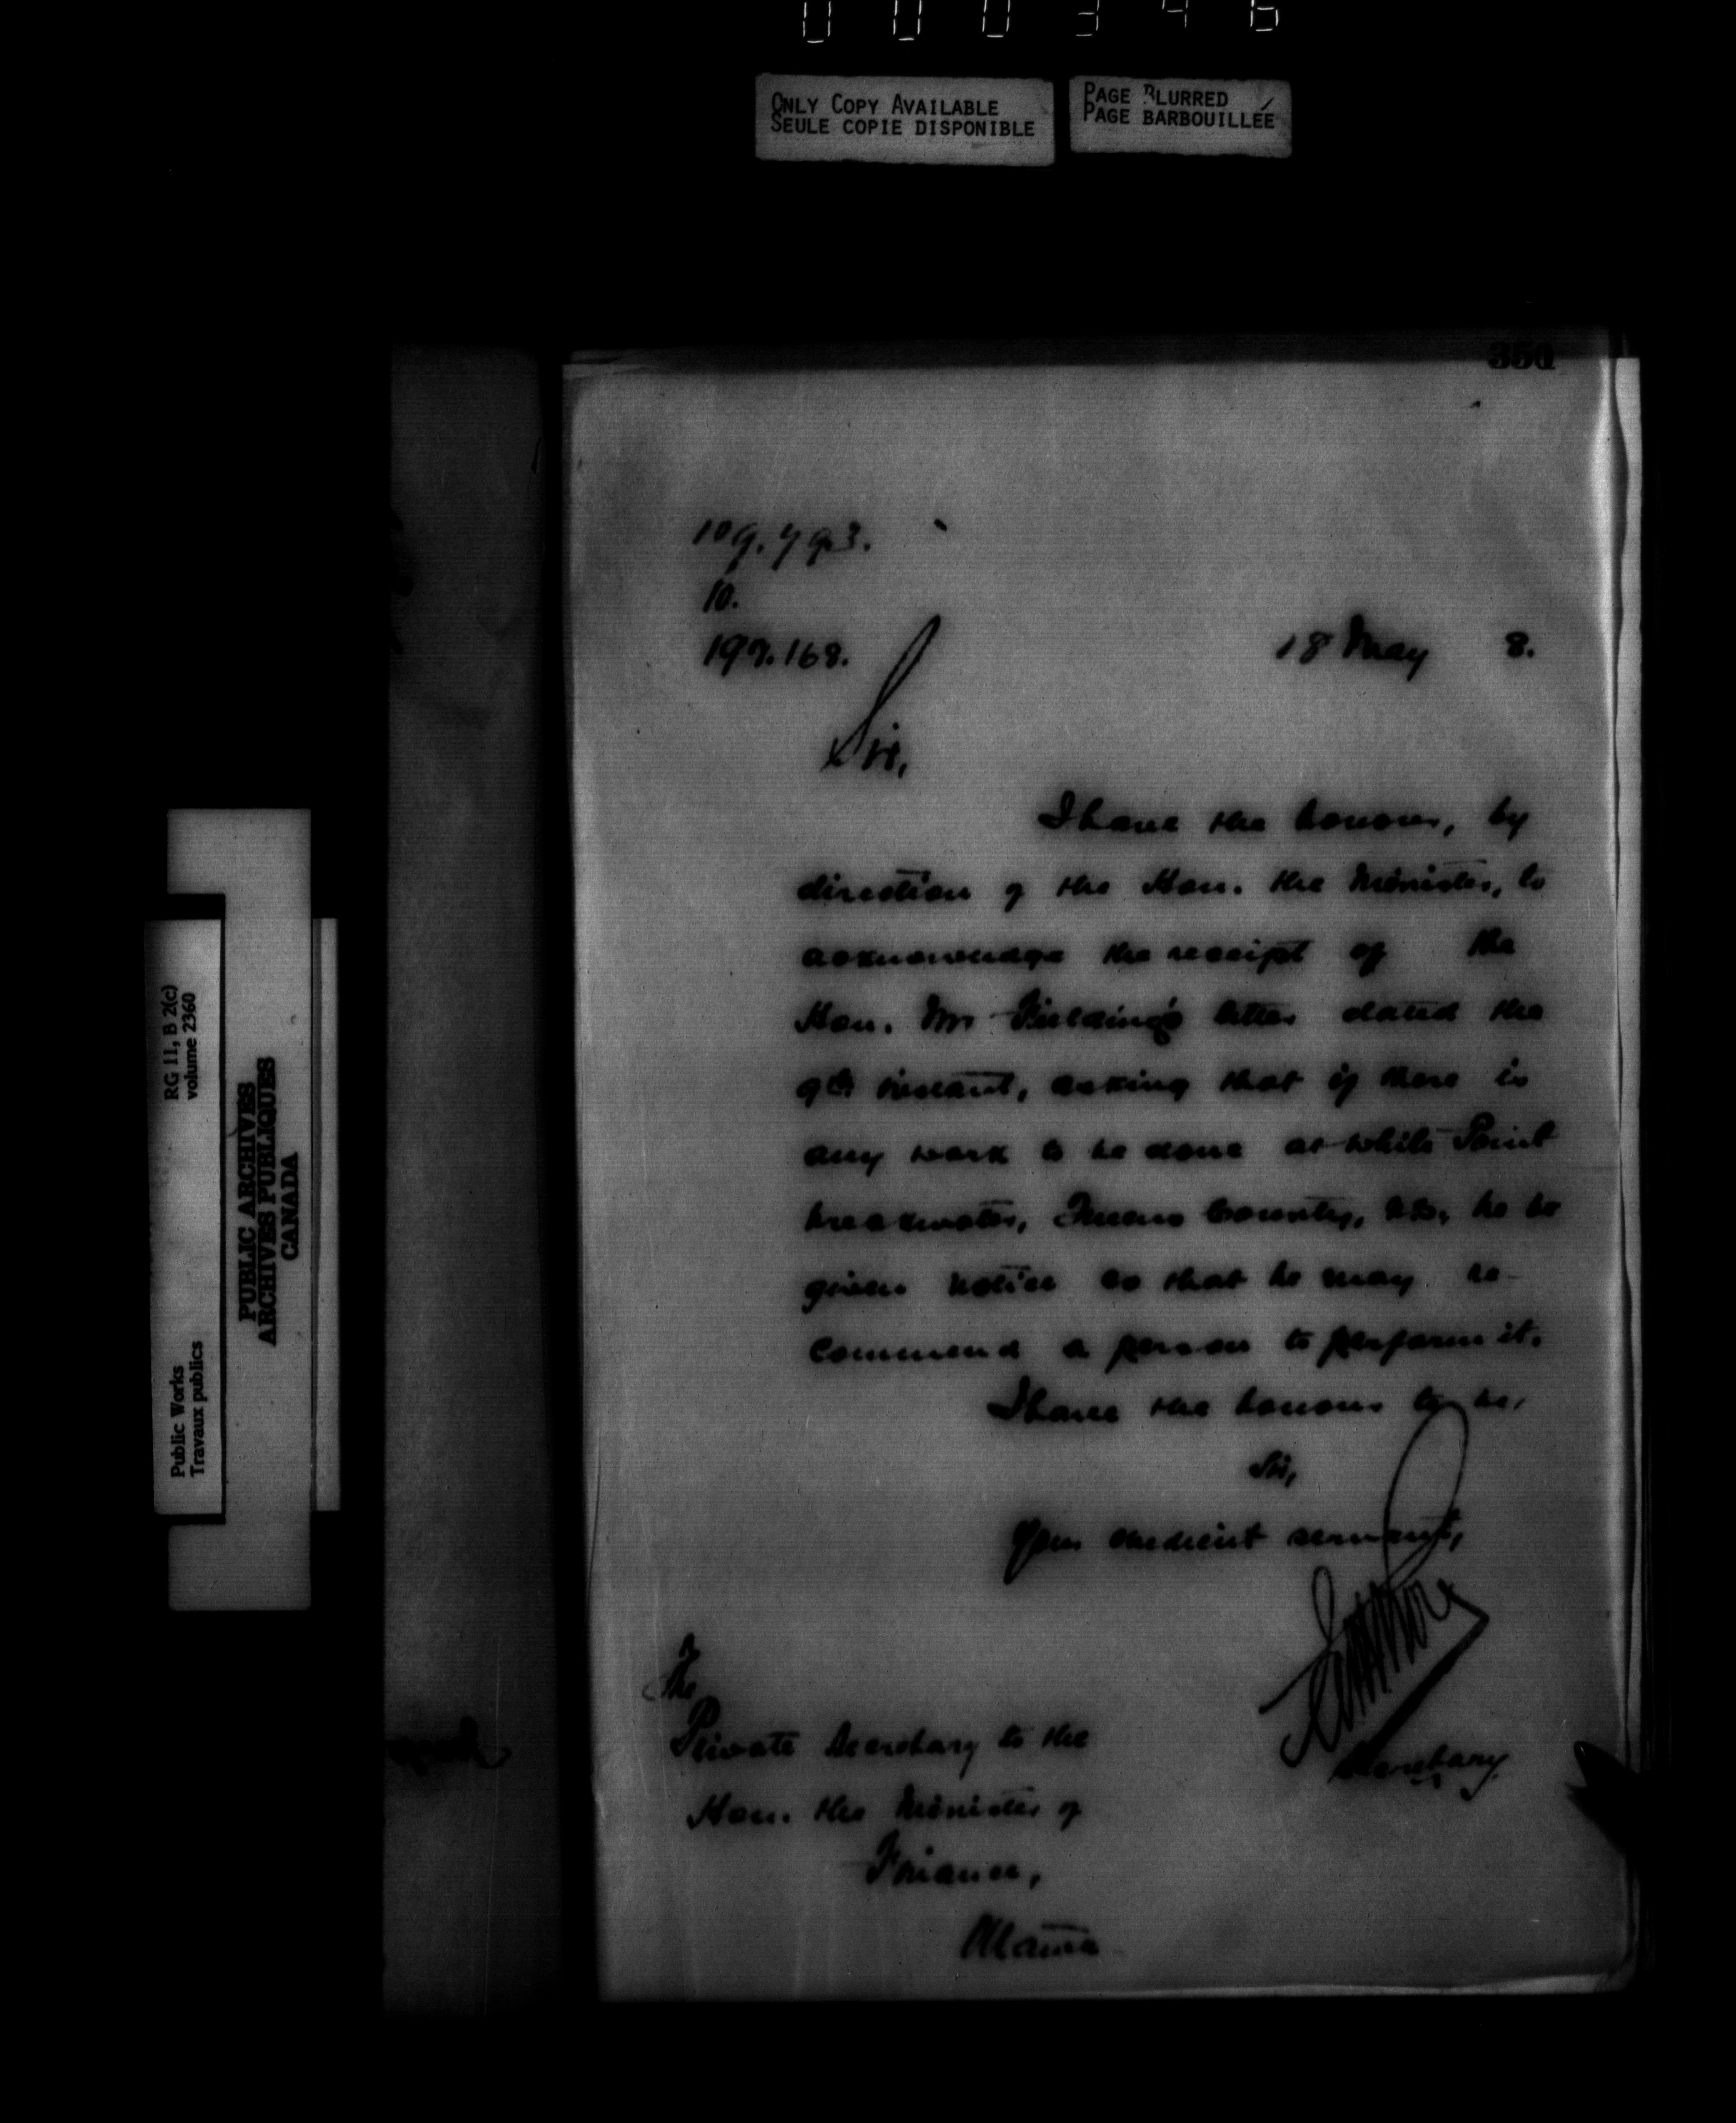 000346
ONLY COPY AVAILABLE
SEULE COPIE DISPONIBLE
PAGE BLURRED
PAGE BARBOUILLÉE
RG 11, B 2(c)
volume 2360
Public Works
Travaux publics
PUBLIC ARCHIVES
ARCHIVES PUBLIQUES
CANADA
350
109.793.
10.
197.168.
18 May 8.
Sir,
I have the honour, by
direction of the Hon. the Minister, to
acknowledge the receipt of the
Hon. Mr Fielding's letter dated the
9th instant, asking that if there is
any work to be done at White Point
breakwater, Queens County, he be
given notice so that he may re-
commend a person to perform it.
I have the honour to be,
Sir,
Your obedient servant,
Secretary
The
Private Secretary to the
Hon. the Minister of
Finance,
Ottawa